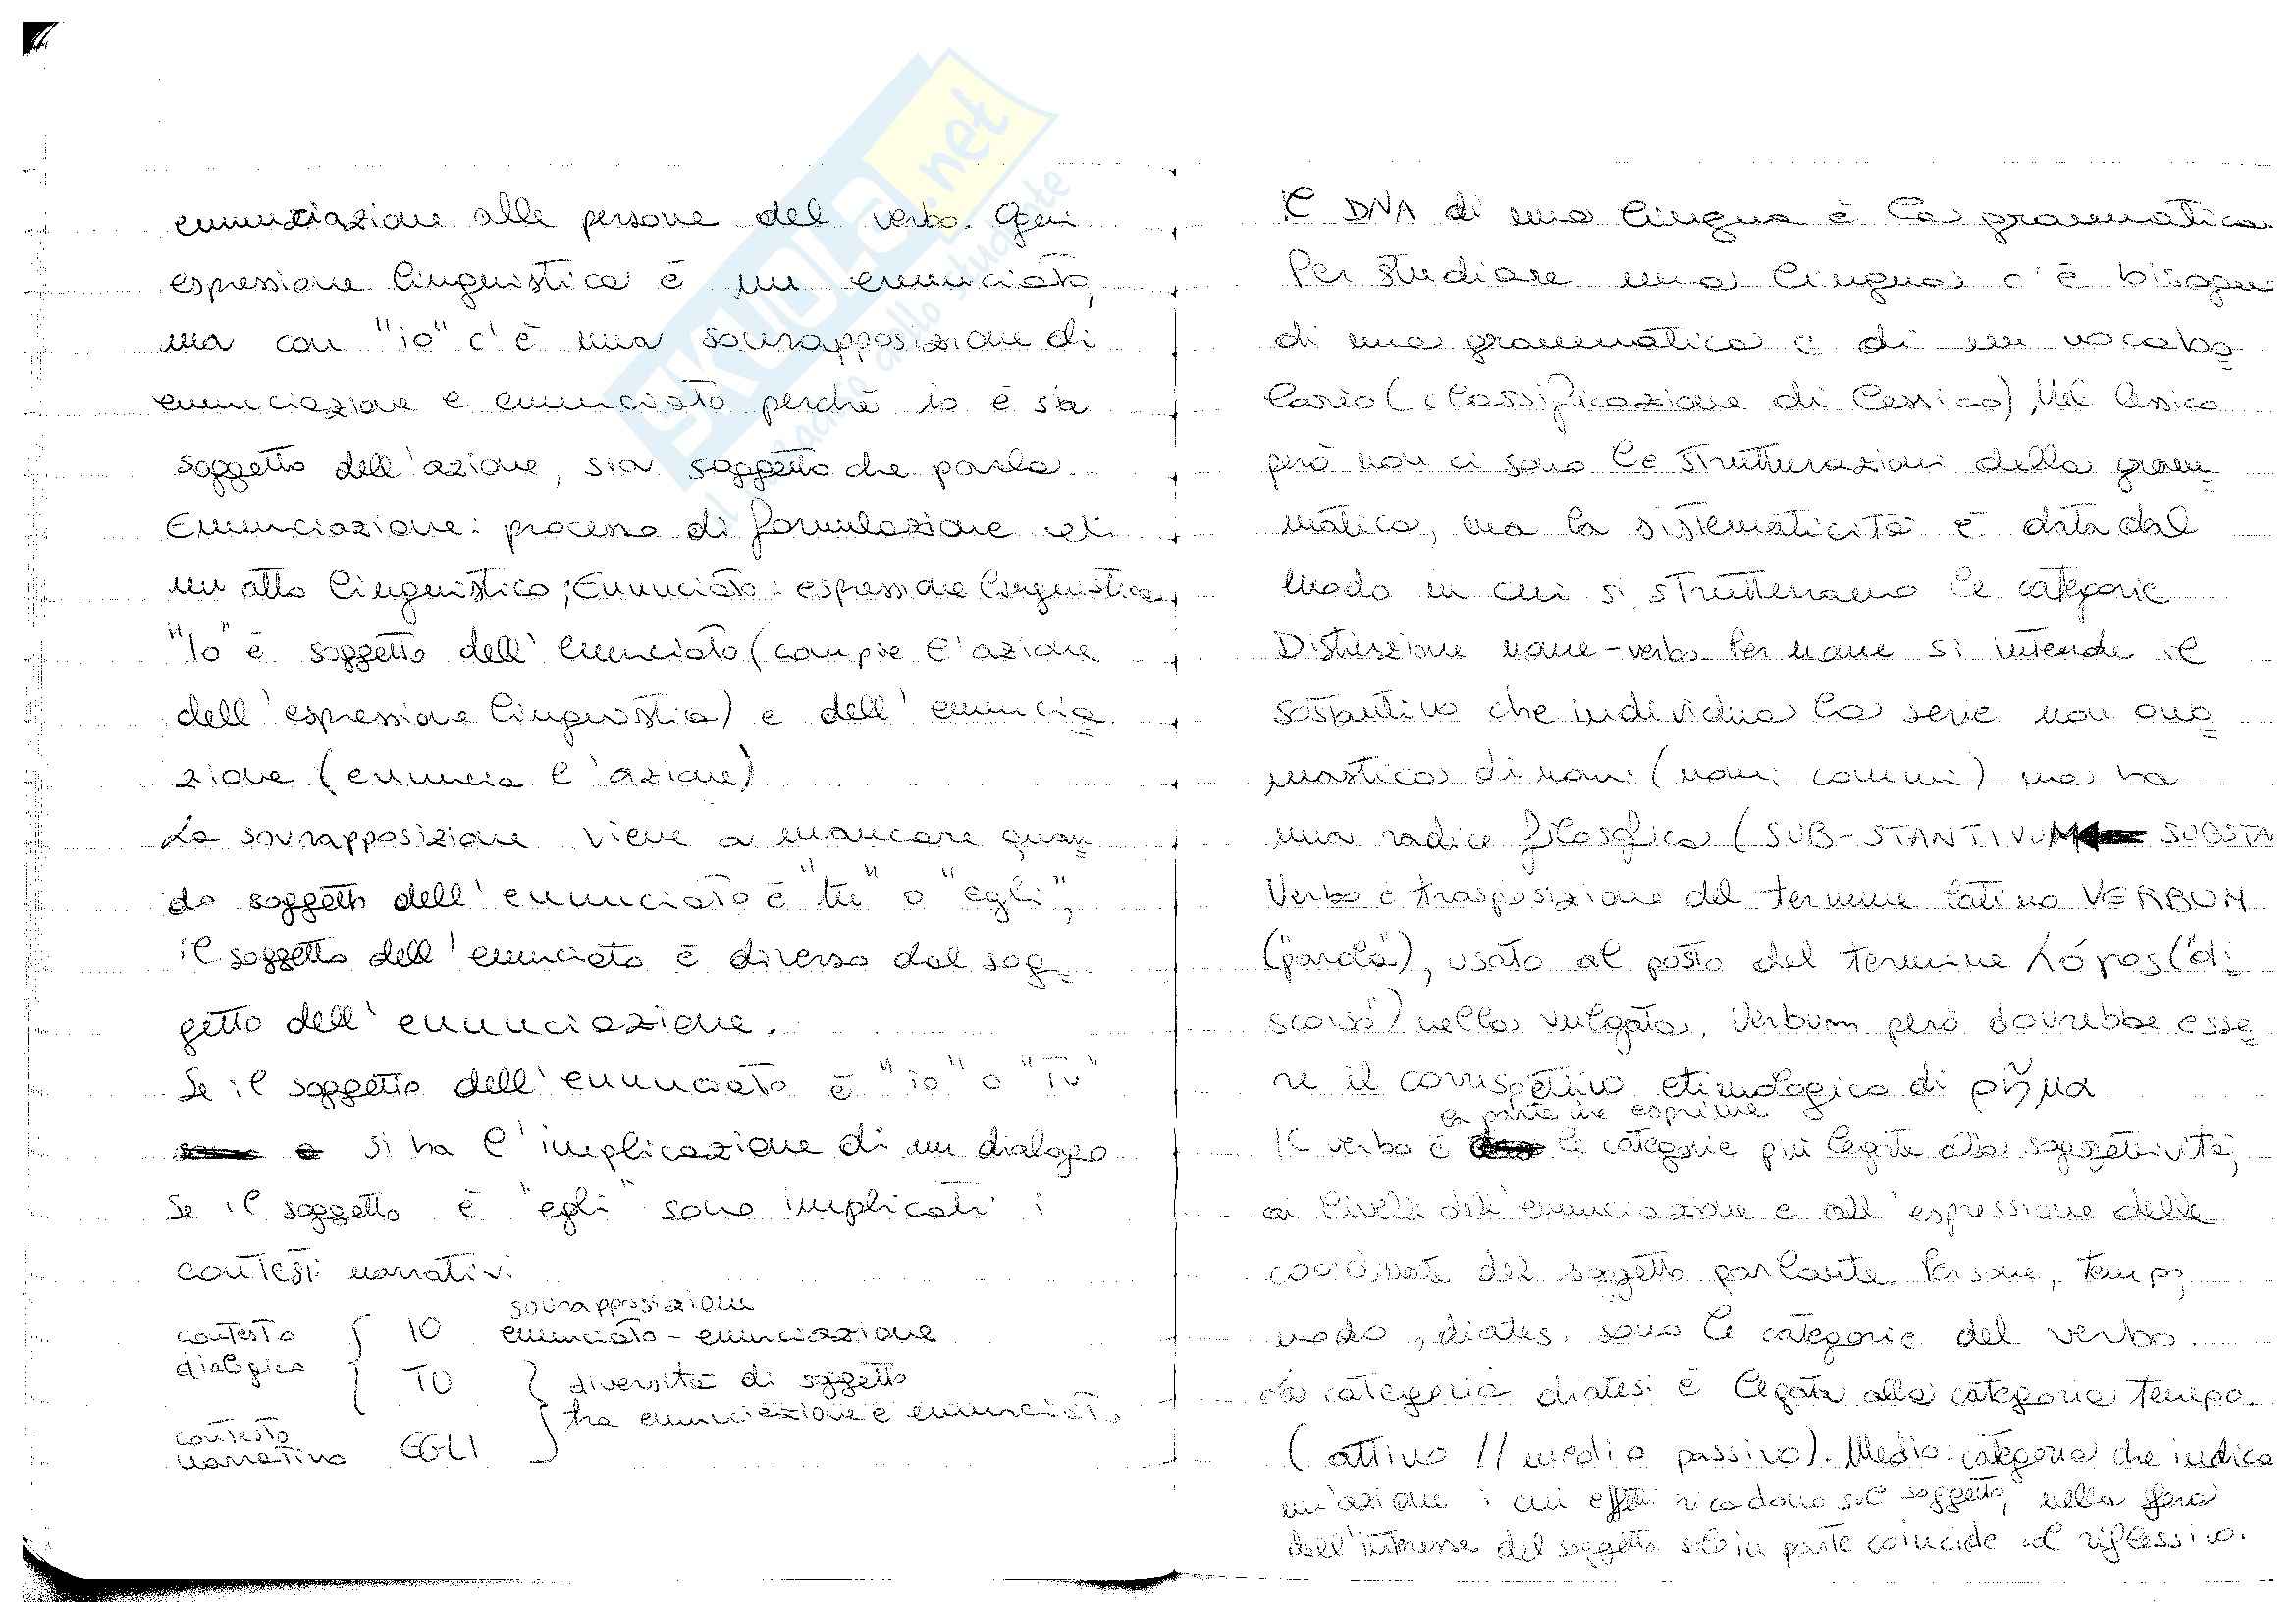 enunciazione alle persone del verbo. Ogni
espressione linguistica è un enunciato,
ma con "io" c'è una sovrapposizione di
enunciazione e enunciato perchè io è sia
soggetto dell'azione, sia soggetto che parla.
Enunciazione: processo di formulazione di
un atto linguistico; Enunciato: espressione linguistica
"Io" è soggetto dell'enunciato (compie l'azione
dell'espressione linguistica) e dell'enuncia=
zione (enuncia l'azione)
La sovrapposizione viene a mancare quan=
do soggetto dell'enunciato è "tu" o "egli",
il soggetto dell'enunciato è diverso dal sog=
getto dell'enunciazione.
Se il soggetto dell'enunciato è "io" o "tu"
si ha l'implicazione di un dialogo
Se il soggetto è "egli" sono implicati i
contesti narrativi
contesto dialogico { IO sovrapposizione enunciato - enunciazione
TU } diversità di soggetto
contesto narrativo EGLI tra enunciazione e enunciato
il DNA di una lingua è la grammatica
Per studiare una lingua c'è bisogno
di una grammatica e di un vocabo=
lario (classificazione di lessico), Nel lessico
però non ci sono le strutturazioni della gram=
matica, ma la sistematicità è data dal
modo in cui si strutturano le categorie
Distinzione nome-verbo. Per nome si intende il
sostantivo che individua la serie non ono=
mastica di nomi (nomi comuni) ma ha
una radice filosofica (SUB-STANTIVUM ← SUBSTA
Verbo è trasposizione del termine latino VERBUM
("parola"), usato al posto del termine λόγος ("di=
scorso") nella vulgata. Verbum però dovrebbe esse=
re il corrispettivo etimologico di ρῆμα
la parte che esprime
Il verbo è le categorie più legate alla soggettività,
ai livelli dell'enunciazione e all'espressione delle
coordinate del soggetto parlante. Persone, tempi,
modo, diatesi sono le categorie del verbo.
La categoria diatesi è legata alla categoria tempo.
(attivo // medio passivo). Medio: categoria che indica
un'azione i cui effetti ricadono sul soggetto, nella sfera
dell'interesse del soggetto solo in parte coincide col riflessivo.
SKUOLA.net